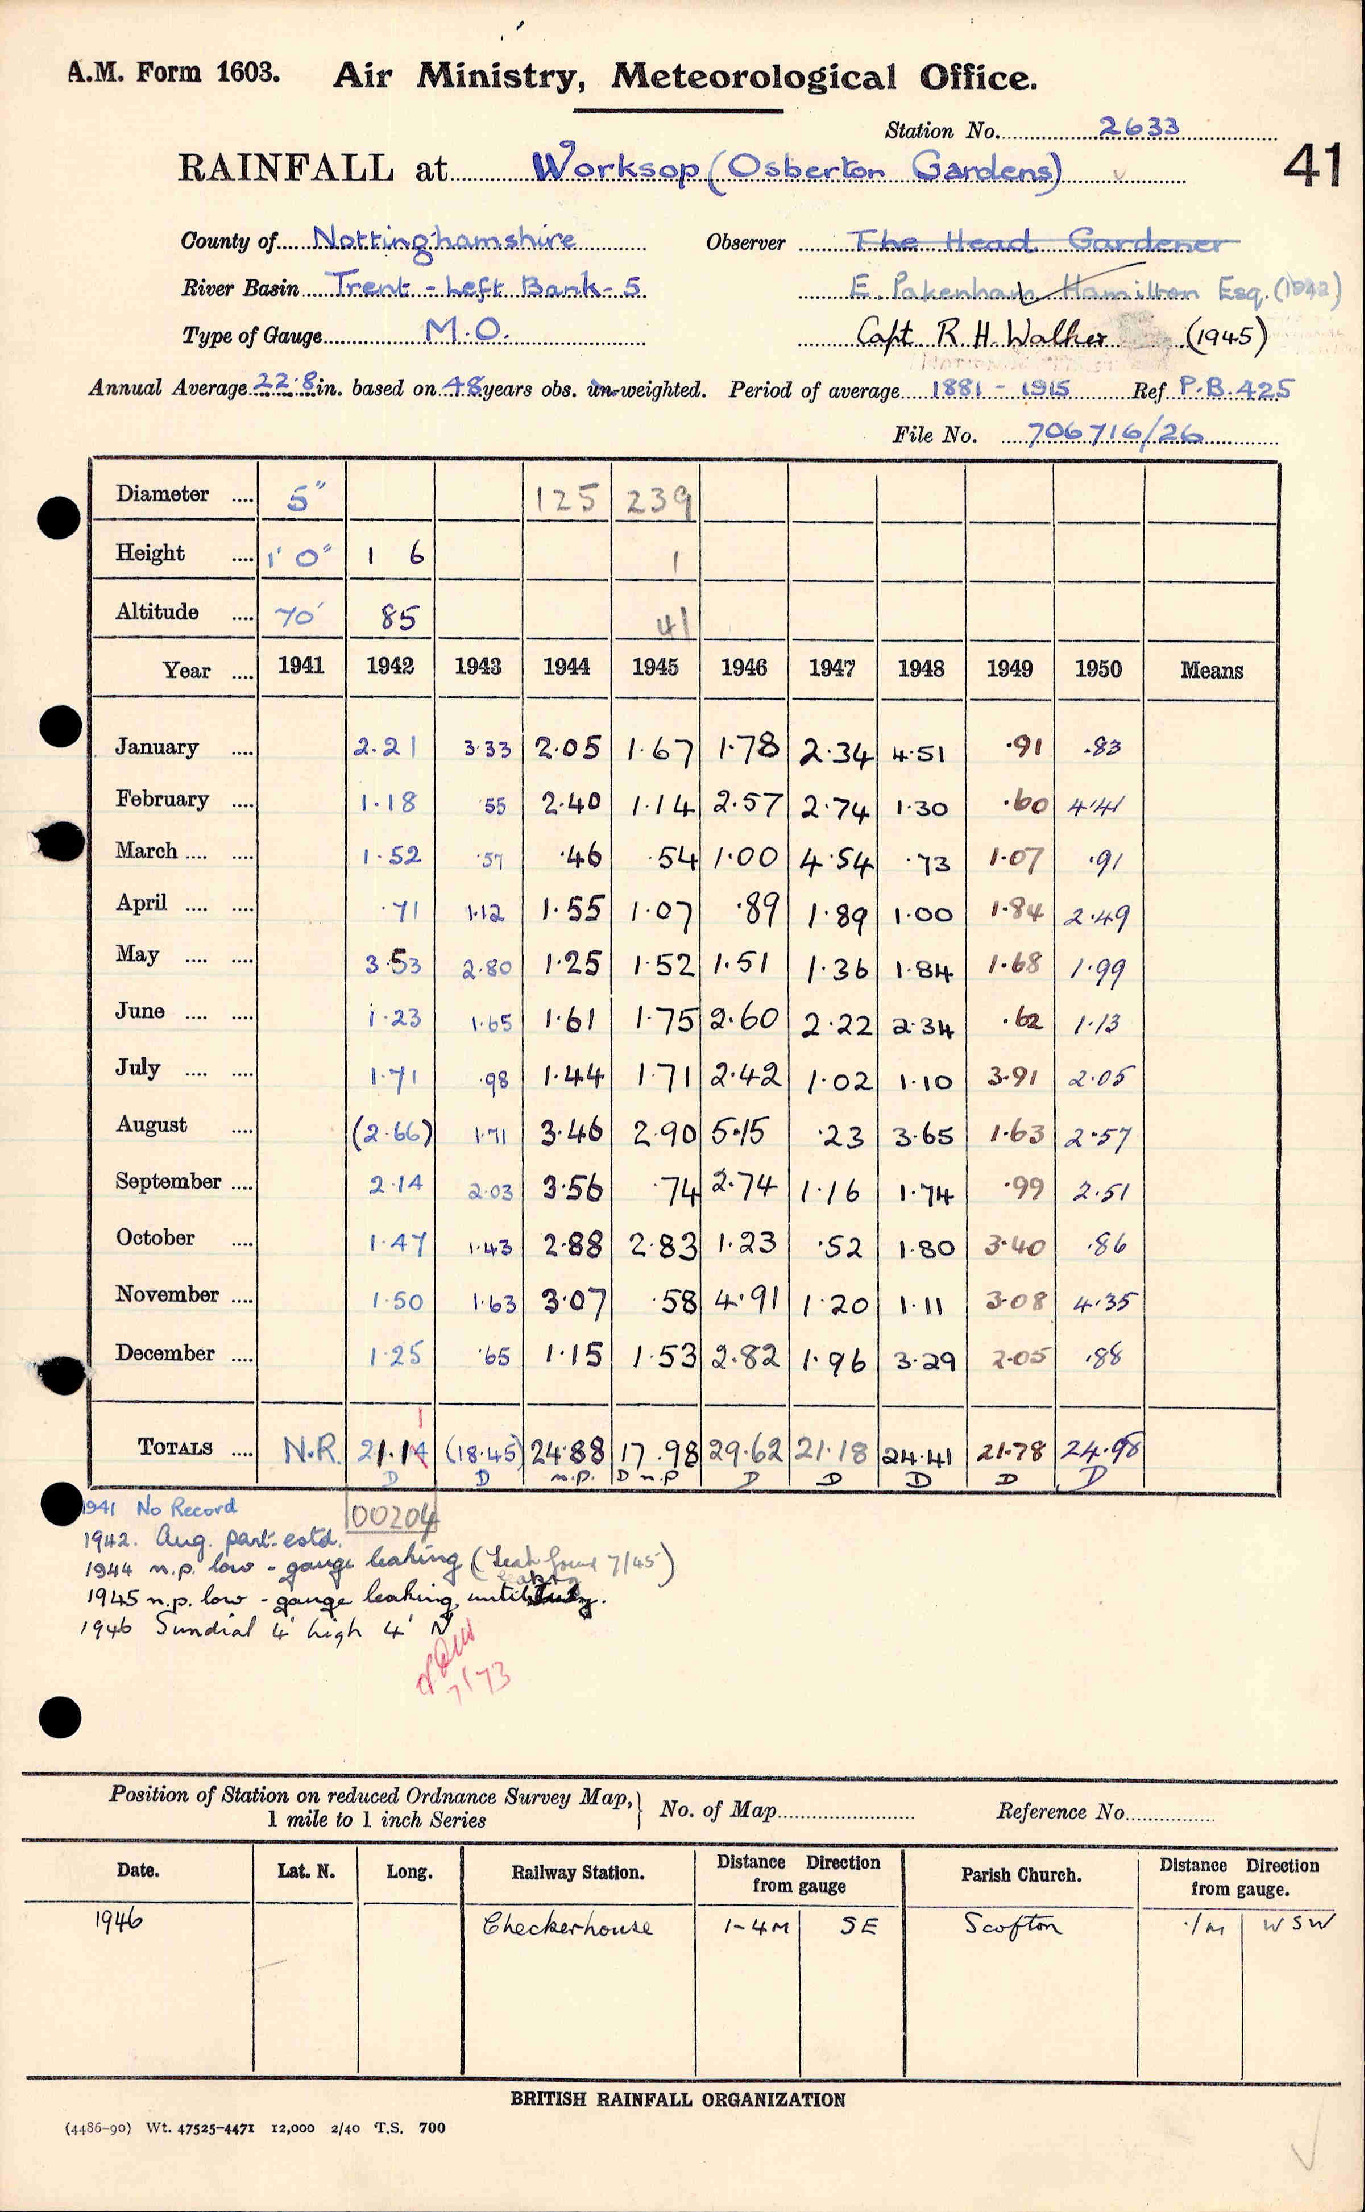 A.M. Form 1603. Air Ministry, Meteorological Office.
Station No. 2633
RAINFALL at Worksop (Osberton Gardens)
41
County of Nottinghamshire Observer The Head Gardener
River Basin Trent - Left Bank - 5 E. Pakenham Hamilton Esq. (1942)
Type of Gauge M.O. Capt. R H. Walker (1945)
Annual Average 22.8 in. based on 48 years obs. un-weighted. Period of average 1881 - 1915 Ref P.B. 425
File No. 706716/26
Diameter .... 5" 125 239
Height .... 1' 0" 1 6 1
Altitude .... 70' 85 41
Year .... 1941 1942 1943 1944 1945 1946 1947 1948 1949 1950 Means
January .... 2.21 3.33 2.05 1.67 1.78 2.34 4.51 .91 .83
February .... 1.18 .55 2.40 1.14 2.57 2.74 1.30 .60 4.41
March .... .... 1.52 .57 .46 .54 1.00 4.54 .73 1.07 .91
April .... .... .71 1.12 1.55 1.07 .89 1.89 1.00 1.84 2.49
May .... .... 3.53 2.80 1.25 1.52 1.51 1.36 1.84 1.68 1.99
June .... .... 1.23 1.65 1.61 1.75 2.60 2.22 2.34 .62 1.13
July .... .... 1.71 .98 1.44 1.71 2.42 1.02 1.10 3.91 2.05
August .... (2.66) 1.71 3.46 2.90 5.15 .23 3.65 1.63 2.57
September .... 2.14 2.03 3.56 .74 2.74 1.16 1.74 .99 2.51
October .... 1.47 1.43 2.88 2.83 1.23 .52 1.80 3.40 .86
November .... 1.50 1.63 3.07 .58 4.91 1.20 1.11 3.08 4.35
December .... 1.25 .65 1.15 1.53 2.82 1.96 3.29 2.05 .88
1
TOTALS .... N.R. 21.14 (18.45) 24.88 17.98 29.62 21.18 24.41 21.78 24.98
D D n.p. D n.p D D D D D
1941 No Record 00204
1942. Aug. part. estd.
1944 n.p. low - gauge leaking (Leak found 7/45)
1945 n.p. low - gauge leaking until July.
1946 Sundial 4' high 4' N
7/73
Position of Station on reduced Ordnance Survey Map, 1 mile to 1 inch Series No. of Map Reference No.
Date. Lat. N. Long. Railway Station. Distance Direction from gauge Parish Church. Distance Direction from gauge.
1946 Checkerhouse 1-4M SE Scofton .1m WSW
BRITISH RAINFALL ORGANIZATION
(4486-90) Wt. 47525-4471 12,000 2/40 T.S. 700